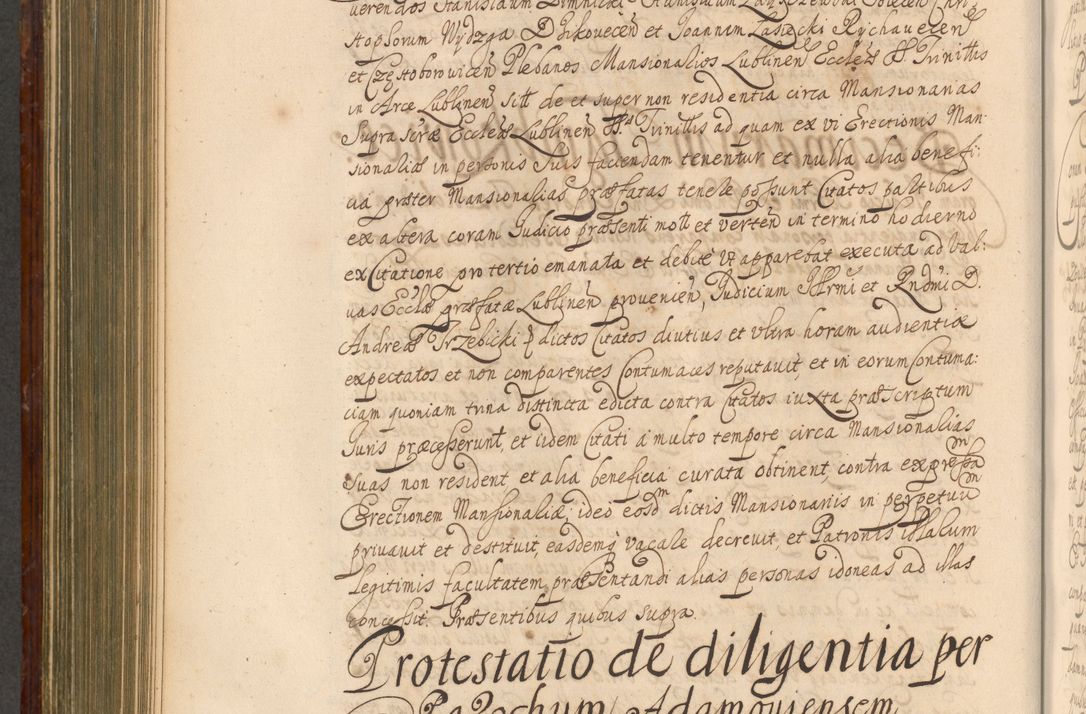 uerendos Stanislaum Dimnicki
stophorum Wydzga Dzikovecen̄ et Joannem Zasiecki Rychavecen̄
et Częstoborovicen̄ Plebanos Mansionalios Lublinen̄ Eccleæ SS. Trinittis
in Arce Lublinen̄ sitt de et super non residentia circa Mansionarias
Supra scræ Eccleæ Lublinen̄ SS. Trinittis ad quam ex vi Erectionis Man:
sionaliæ in personis suis faciendam tenentur et nulla alia benefi:
cia præter Mansionalias præfatas tenere possunt Citatos partibus
ex altera coram Judicio præsenti mott et verten̄ in termino hodierno
ex Citatione pro tertio emanata et debite ut apparebat executa ad Val:
vas Ecclæ præfatæ Lublinen̄ provenien̄, Judicium Illrmi et Rndmi D.
Andreæ Trzebicki dictos Citatos diutius et ultra horam audientiæ
expectatos et non comparentes Contumaces reputavit, et in eorum Contuma:
ciam quoniam trina distincta edicta contra Citatos iuxta præscriptum
Juris præcesserunt, et iidem Citati a multo tempore circa Mansionalias
suas non resident, et alia beneficia curata obtinent, contra expressam
Erectionem Mansionaliæ, ideo eosdm dictis Mansionariis in perpetuum
privavit et destituit, easdemq vacare decrevit, et Patronis illarum
legitimis facultatem præsentandi alias personas idoneas ad illas
concessit. Præsentibus quibus supra.
Protestatio de diligentia per
Parochum Adamoviensem